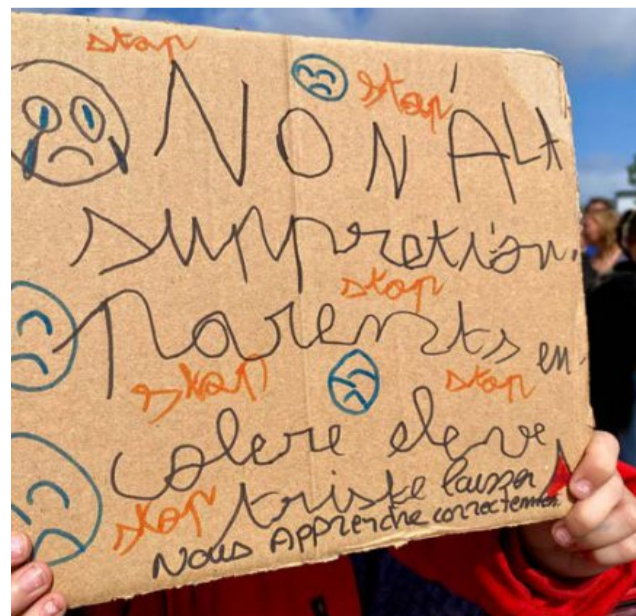 stop
stop
NON À LA
suppretion.
stop
parents en
stop
stop
colere eleve
stop
triste laisser
Nous Apprendre correctement